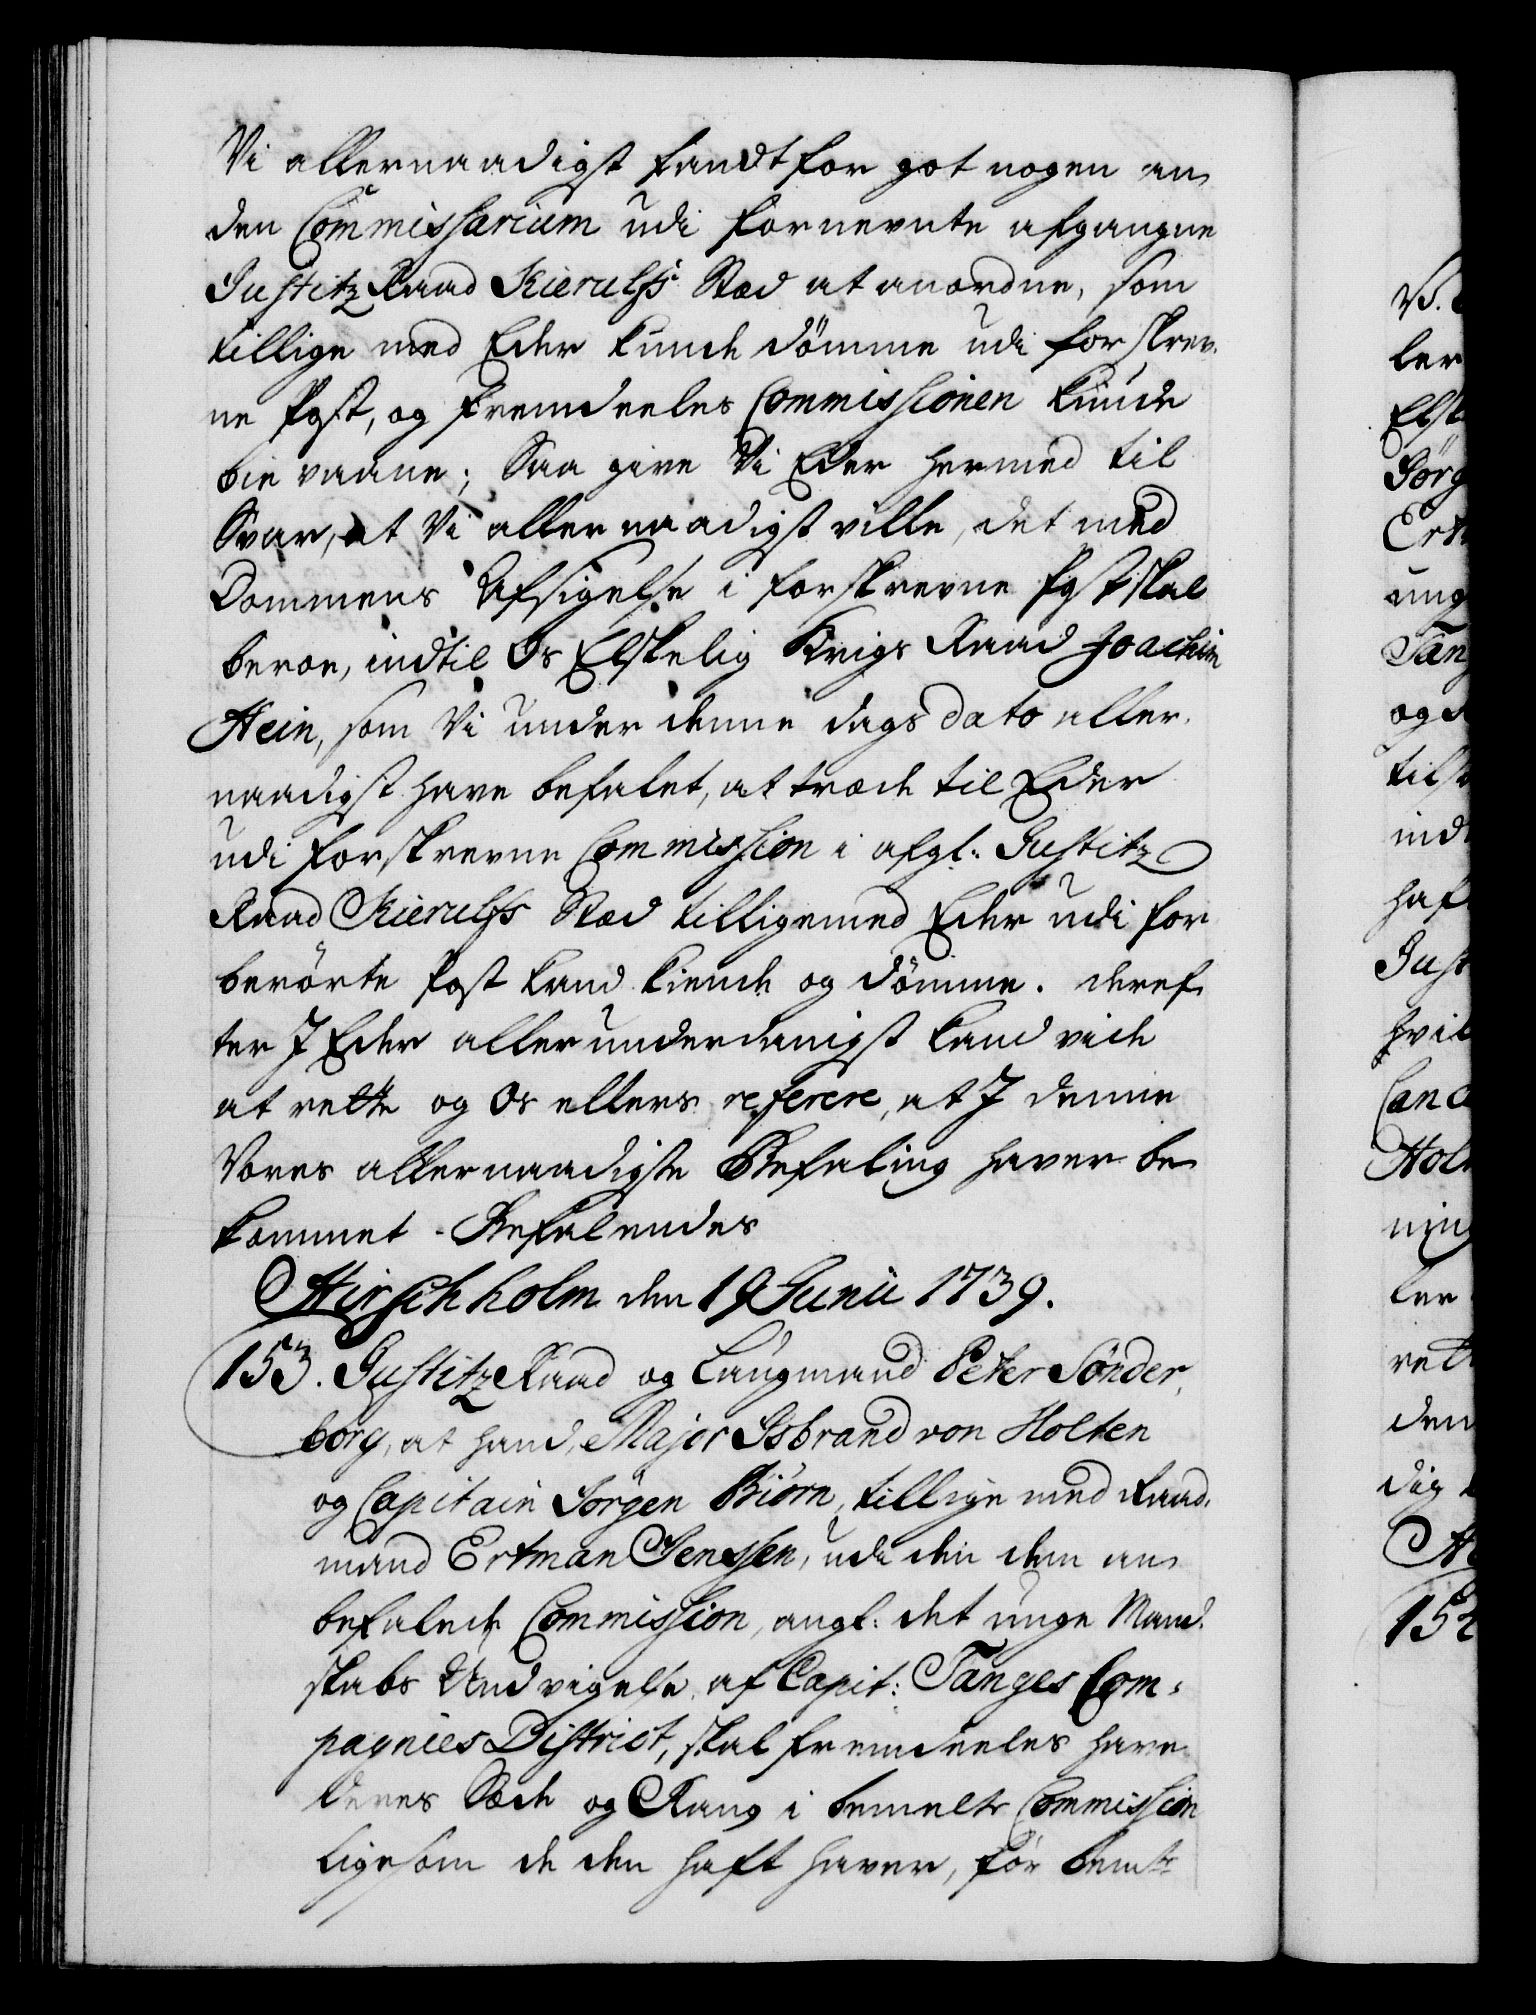 Vi allernaadigst fandt for got nogen an
den Commissarium udi fornevnte afgangne
Justitz Raad Kierulfs Stæd at anordne, som
tillige med Eder kunde dömme udi forskrev
ne Post, og fremdeeles Commissionen kunde
bie vaane; Saa give Vi Eder hermed til
Svar, at Vi allernaadigst ville, det med
Dommens Afsigelse i forskrevne Post skal
beroe, indtil Os Elskelig Krigs Raad Joachim
Hein, som Vi under denne dags dato aller
naadigst have befalet, at træde til Eder
udi forskrevne Commission i afgl: Justitz
Raad Kierulfs Stæd tilligemed Eder udi for
berörte Post kand kiende og dömme. deref
ter J Eder allerunderdanigst kand vide
at rette og Os ellers referere, at J denne
Vores allernaadigste Befaling haver be
kommet. Befalendes
Hirschholm den 19 Junii 1739.
153. Justitz Raad og Laugmand Peter Sönder
borg, at hand, Major Isbrand von Holten
og Capitain Jörgen Biörn, tillige med Raad
mand Ertman Jenssen, udi den dem an
befalede Commission, angl: det unge Mand
skabs Undvigelse af Capit: Tanges Com
pagnies District, skal fremdeeles have
deres Sæde og Rang i bemelte Commission
ligesom de den haft haver, för bemte
V.
ler
Elsk
Jörg
Ert
ung
Tan
og
tils
ind
haf
Just
hvil
Canc
Hol
ning
ler
rett
den
dig
H
154